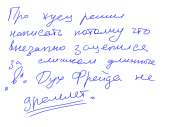 Про куец решил
написать потому что
внезапно зацепился
за слишком длинное
"в". Дух Фрейда не
дремлет.